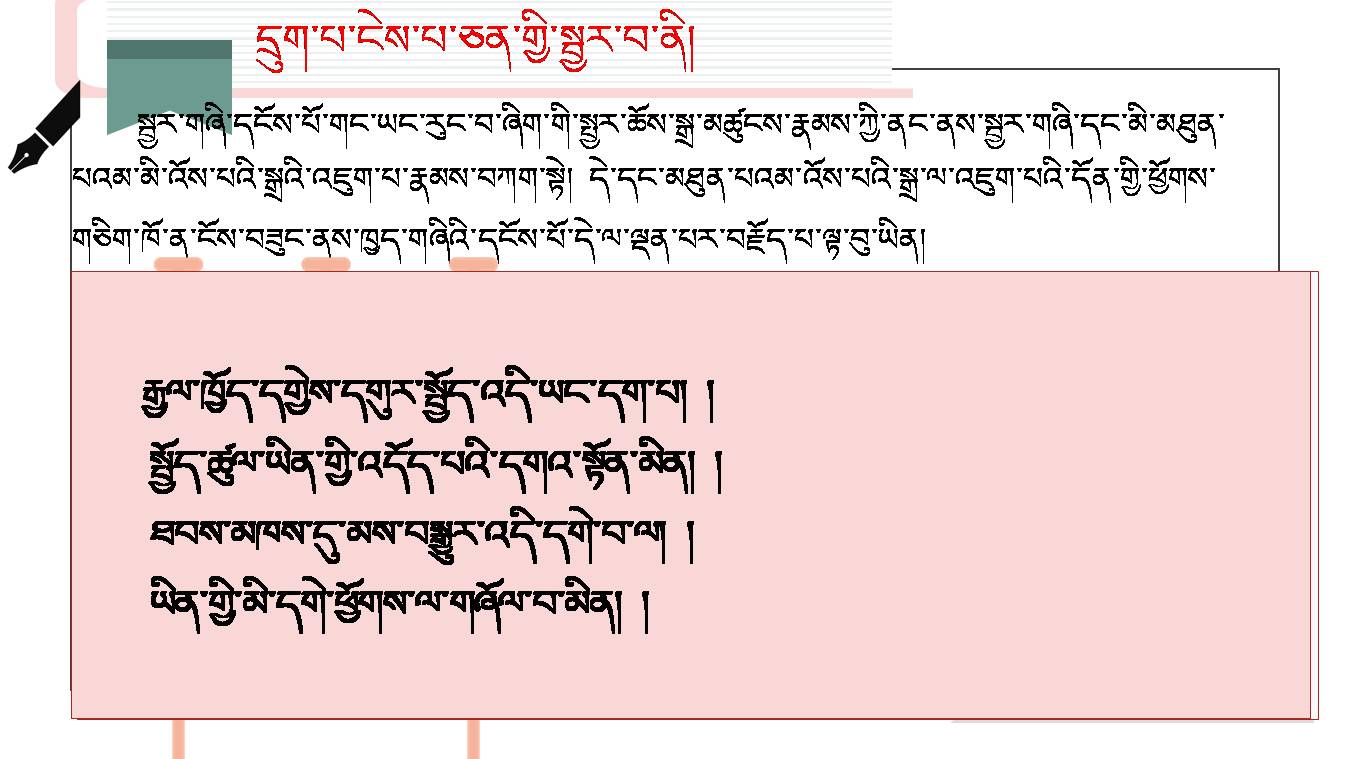 དྲུག་པ་ངེས་པ་ཅན་གྱི་སྦྱར་བ་ནི།
སྦྱར་གཞི་དངོས་པོ་གང་ཡང་རུང་བ་ཞིག་གི་སྤྱིར་ཆོས་སྒྲ་མཚུངས་རྣམས་ཀྱི་ནང་ནས་སྦྱར་གཞི་དང་མི་མཐུན་
པའམ་མི་འོས་པའི་སྒྲའི་འཇུག་པ་རྣམས་བཀག་སྟེ། དེ་དང་མཐུན་པའམ་འོས་པའི་སྒྲ་ལ་འཇུག་པའི་དོན་གྱི་ཕྱོགས་
གཅིག་ཁོ་ན་ངོས་བཟུང་ནས་ཁྱད་གཞིའི་དངོས་པོ་དེ་ལ་ལྡན་པར་བརྗོད་པ་ལྟ་བུ་ཡིན།
རྒྱལ་ཁྱོད་དགྱེས་དགུར་སྤྱོད་འདི་ཡང་དག་པ། །
སྤྱོད་ཚུལ་ཡིན་གྱི་འདོད་པའི་དགའ་སྟོན་མིན། །
ཐབས་མཁས་དུ་མས་བསྒྱུར་འདི་དགེ་བ་ལ། །
ཡིན་གྱི་མི་དགེ་ཕྱོགས་ལ་གཞོལ་བ་མིན། །